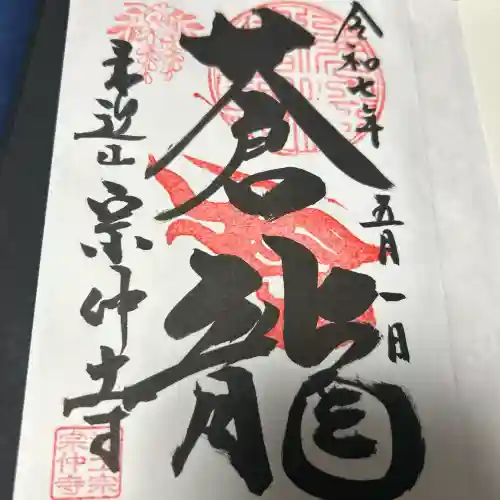 令和七年
五月一日
蒼龍
来迎山
宗仲寺
宗仲寺